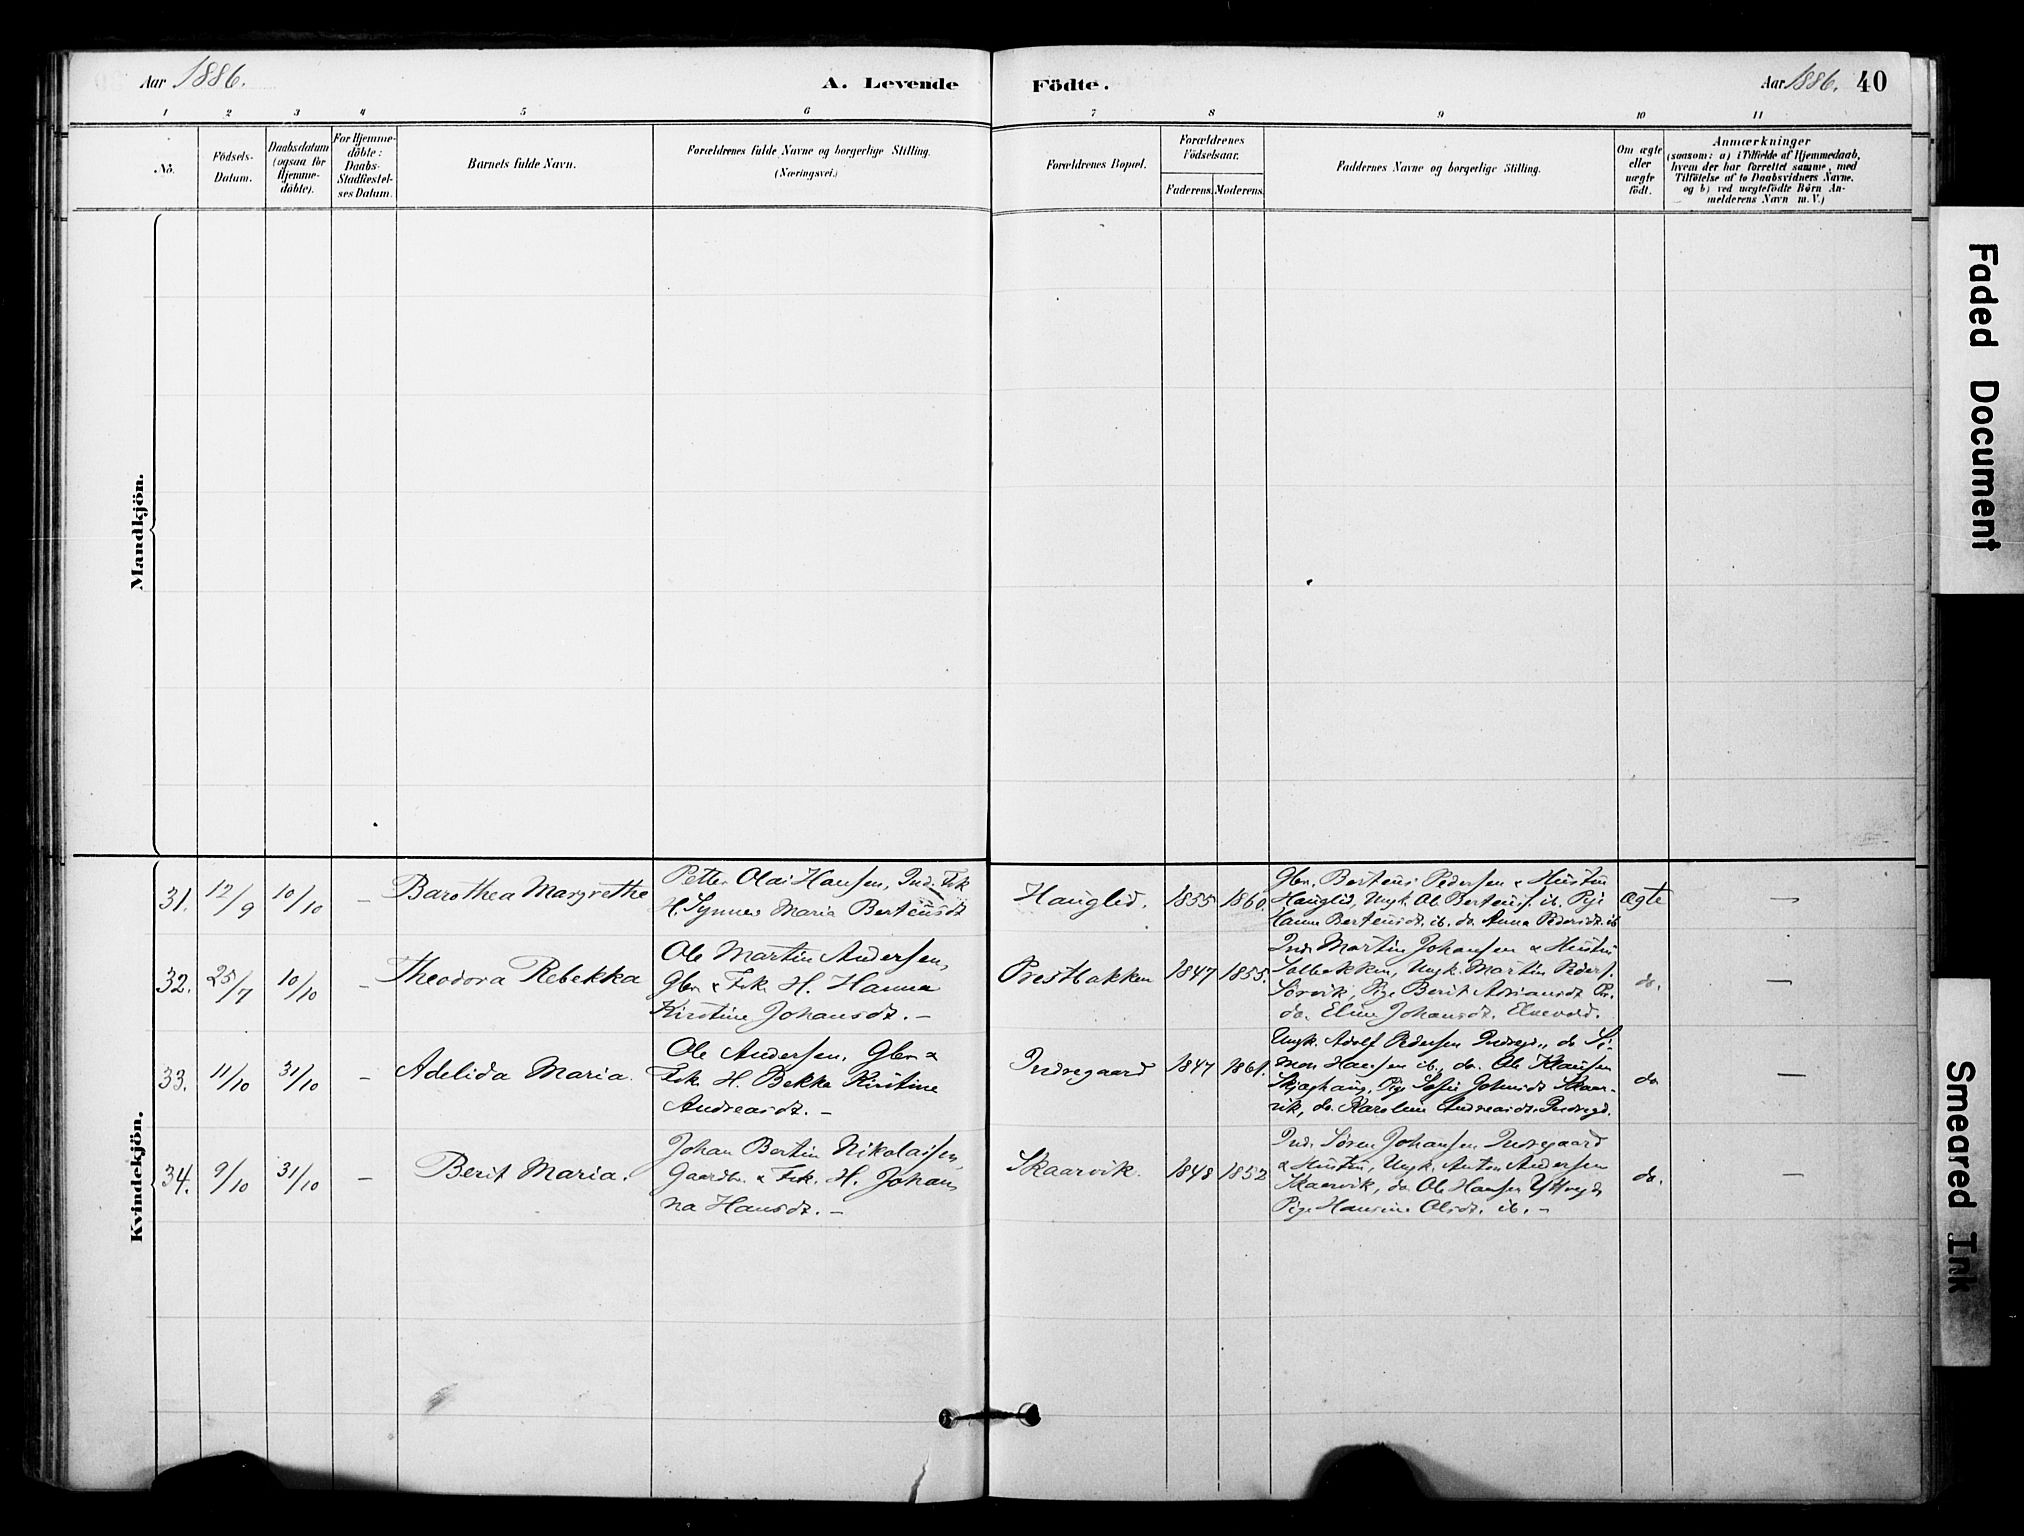 Aar 1886.
A. Levende
Födte.
Aar 1886. 40
1 2 3 4 5 6 7 8 9 10 11
No.
Födsels-
Datum.
Daabsdatum
(ogsaa for
Hjemme-
döbte).
For Hjemme-
döbte:
Daabs-
Stadfæstel-
ses Datum.
Barnets fulde Navn.
Forældrenes fulde Navne og borgerlige Stilling.
(Næringsvei.)
Forældrenes Bopæl.
Forældrenes
Födselsaar.
Faderens. Moderens.
Faddernes Navne og borgerlige Stilling.
Om ægte
eller
uægte
født.
Anmærkninger
(saasom: a) i Tilfælde af Hjemmedaab,
hvem der har forrettet samme, med
Tilföielse af to Daabsvidners Navne.
og b) ved uægtefödte Börn An-
melderens Navn m. V.)
Mandkjön.
Kvindekjön.
31. 12/9 10/10 – Barothea Margrethe
Petter Olai Hansen, Ind. Fsk
H. Synnes Maria Berteusdt
Hauglid. 1855 1860.
Gbr. Berteus Pedersen & Hustru
Hauglid, Ungk. Ole Berteuss. ib. Pige
Hanna Berteusdt. ib. do. Anna Pedersdt. ib
Ægte –
32. 25/7 10/10 – Theodora Rebekka
Ole Martin Andersen,
Gbr. & Fsk. H. Hanna
Kirstine Johansdt. –
Prestbakken 1847 1855.
Ind. Martin Johansen & Hustru
Solbakken, Ungk. Martin Peders.
Sörvik, Pige Berit Adriansdt Pr.
do. Eline Johansdt. Elvevold.
do. –
33. 11/10 31/10 – Adelida Maria.
Ole Andersen, Gbr. &
Fsk. H. Bekka Kirstine
Andreasdt. –
Indregaard 1847 1861.
Ungk. Adolf Pedersen Indregd., do Si-
mon Hansen ib., do. Ole Klausen
Skjæghaug, Pige Sofie Johnsdt Skaar-
vik, do. Karoline Andreasdt. Indregd.
do –
34. 9/10 31/10 – Berit Maria.
Johan Bertin Nikolaisen,
Gaardbr. & Fsk. H. Johan
na Hansdt. –
Skaarvik. 1848 1852
Ind. Sören Johansen Indregaard
& Hustru, Ungk. Anton Andersen
Skaarvik, do Ole Hansen
Pige Hansine Olsdt. ib. –
do. –
Faded Document
Smeared Ink